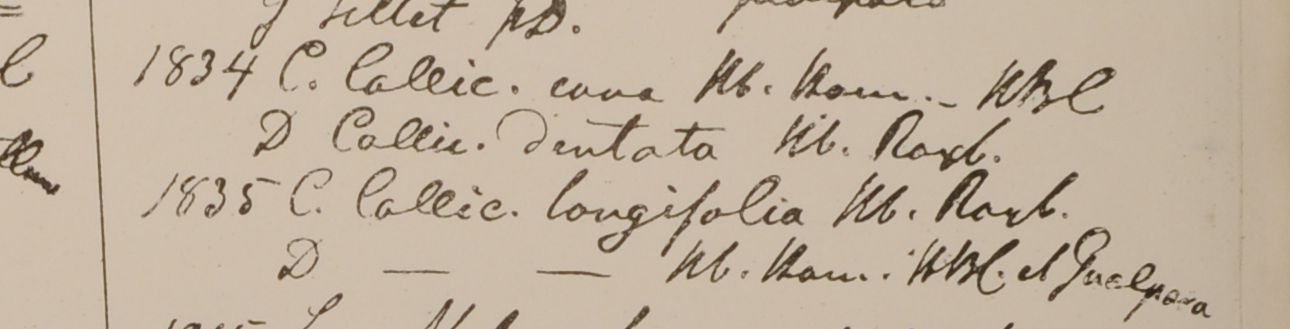 Sillet FD.
l
1834 C. Callic. cana Hb. Ham. - HBC
D Callic. dentata Hb. Roxb.
1835 C. Callic. longifolia Hb. Roxb.
D — — Hb. Ham. HBC. et Gualpara